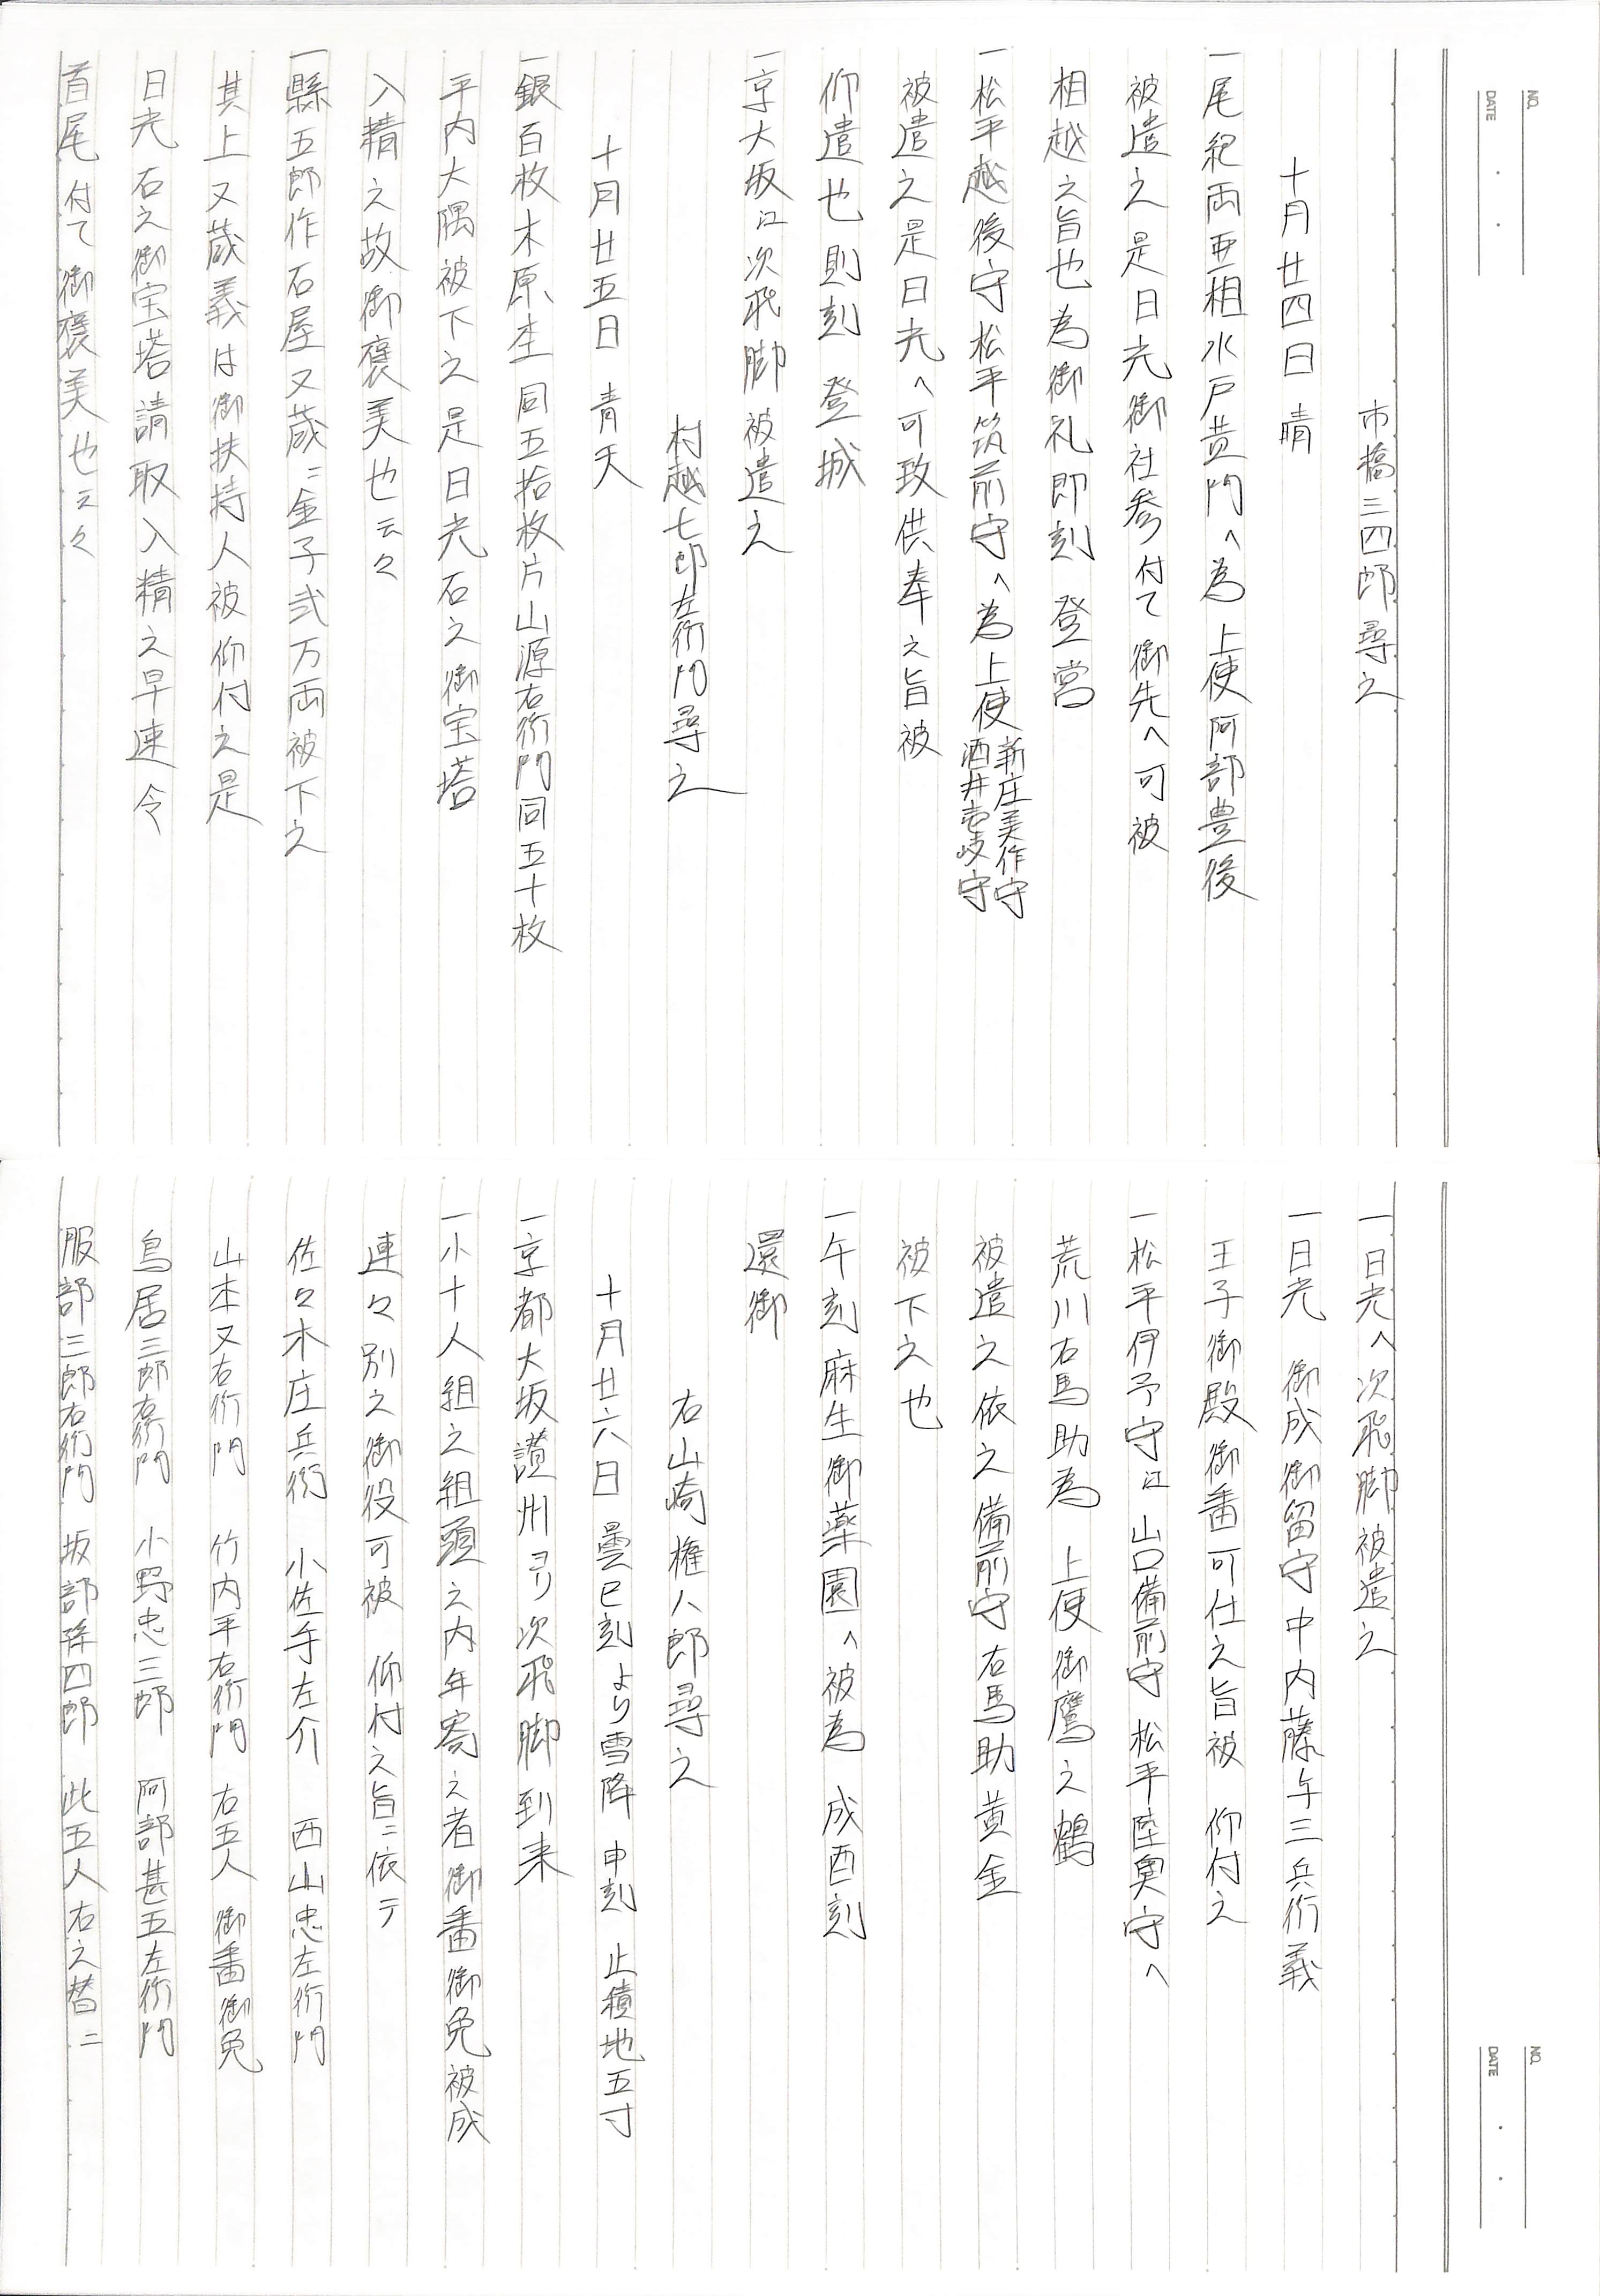 NO.
DATE
市橋三四郎尋之
十月廿四日 晴
一尾紀両亜相水戸黄門へ為 上使阿部豊後
被遣之是日光御社参付て御先へ可被
相越之旨也為御礼即刻 登営
一松平越後守松平筑前守へ為上使 新庄美作守 酒井壱岐守
被遣之是日光へ可致供奉之旨被
仰遣也則刻 登城
一京大坂江次飛脚被遣之
村越七郎左衛門尋之
十月廿五日 青天
一銀百枚木原杢同五拾枚片山源右衛門同五十枚
平内大隅被下之是日光石之御宝塔
入精之故御褒美也云々
一縣五郎作石屋又蔵ニ金子弐万両被下之
其上又蔵義は御扶持人被仰付之是
日光石之御宝塔請取入精之早速令
首尾付て御褒美也云々
NO.
DATE
一日光へ次飛脚被遣之
一日光 御成御留守中内藤午三兵衛義
王子御殿御番可仕之旨被 仰付之
一松平伊予守江山口備前守松平陸奥守へ
荒川右馬助為 上使御鷹之鶴
被遣之依之備前守右馬助黄金
被下之也
一午刻麻生御薬園へ被為 成酉刻
還御
右山崎権八郎尋之
十月廿六日 曇巳刻より雪降 申刻 止積地五寸
一京都大坂讃州ヨリ次飛脚到来
一小十人組之組頭之内年寄之者御番御免被成
連々別之御役可被 仰付之旨ニ依テ
佐々木庄兵衛 小佐手左介 西山忠左衛門
山本又右衛門 竹内平右衛門 右五人 御番御免
鳥居三郎右衛門 小野忠三郎 阿部甚五左衛門
服部三郎右衛門 坂部孫四郎 此五人右之替ニ